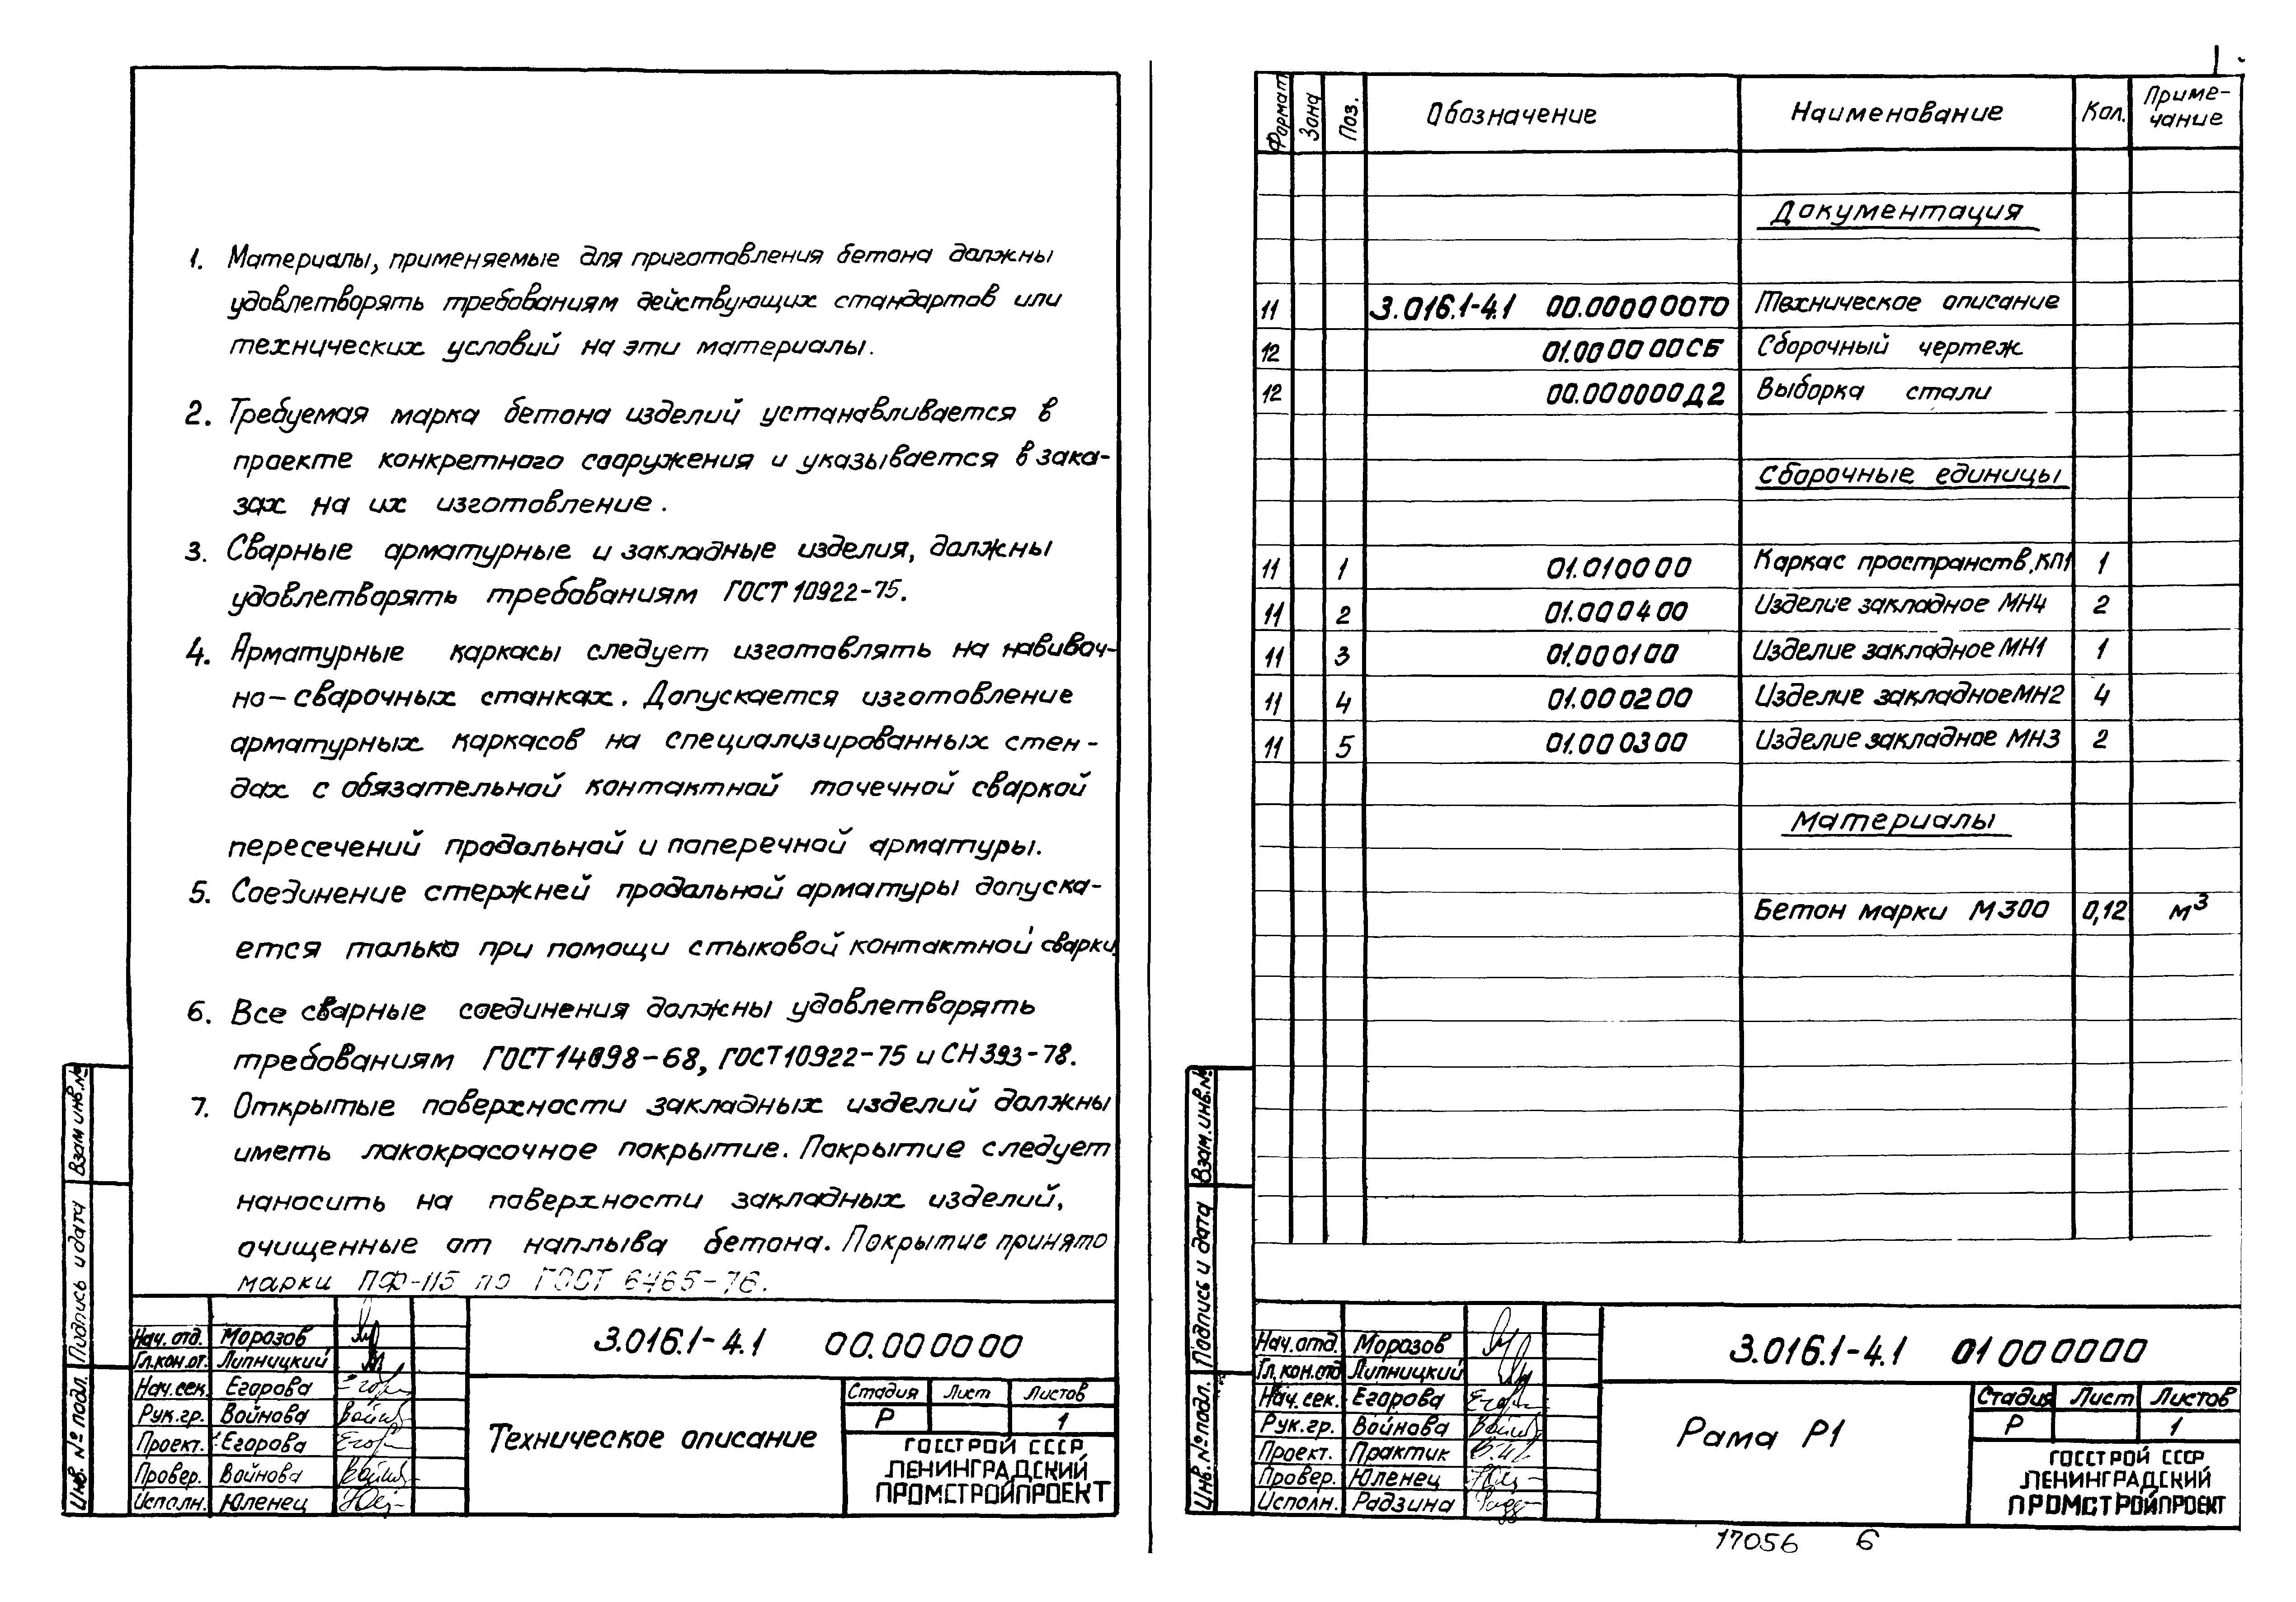 1. Материалы, применяемые для приготовления бетона должны
удовлетворять требованиям действующих стандартов или
технических условий на эти материалы.
2. Требуемая марка бетона изделий устанавливается в
проекте конкретного сооружения и указывается в зака-
зах на их изготовление.
3. Сварные арматурные и закладные изделия, должны
удовлетворять требованиям ГОСТ 10922-75.
4. Арматурные каркасы следует изготовлять на навивоч-
но-сварочных станках. Допускается изготовление
арматурных каркасов на специализированных стен-
дах с обязательной контактной точечной сваркой
пересечений продольной и поперечной арматуры.
5. Соединение стержней продольной арматуры допуска-
ется только при помощи стыковой контактной сварки.
6. Все сварные соединения должны удовлетворять
требованиям ГОСТ 14098-68, ГОСТ 10922-75 и СН 393-78.
7. Открытые поверхности закладных изделий должны
иметь лакокрасочное покрытие. Покрытие следует
наносить на поверхности закладных изделий,
очищенные от наплыва бетона. Покрытие принято
марки ПФ-115 по ГОСТ 6465-76.
Взам инв.№
Подпись и дата
Инв. № подл.
Нач. отд. Морозов
Гл.кон.от. Липницкий
Нач. сек. Егорова
Рук.гр. Войнова
Проект. Егорова
Провер. Войнова
Исполн. Юленец
3.016.1-4.1 00.000000
Техническое описание
Стадия Лист Листов
Р 1
ГОССТРОЙ СССР
ЛЕНИНГРАДСКИЙ
ПРОМСТРОЙПРОЕКТ
Формат Зона Поз. Обозначение Наименование Кол. Приме-
чание
Документация
11 3.016.1-4.1 00.000000ТО Техническое описание
12 01.000000СБ Сборочный чертеж
12 00.000000Д2 Выборка стали
Сборочные единицы
11 1 01.010000 Каркас пространств.КП1 1
11 2 01.000400 Изделие закладное МН4 2
11 3 01.000100 Изделие закладное МН1 1
11 4 01.000200 Изделие закладное МН2 4
11 5 01.000300 Изделие закладное МН3 2
Материалы
Бетон марки М300 0,12 м³
Взам.инв.№
Подпись и дата
Инв.№ подл.
Нач. отд. Морозов
Гл. кон.отд Липницкий
Нач. сек. Егорова
Рук. гр. Войнова
Проект. Практик
Провер. Юленец
Исполн. Радзина
3.016.1-4.1 01 000000
Рама Р1
Стадия Лист Листов
Р 1
ГОССТРОЙ СССР
ЛЕНИНГРАДСКИЙ
ПРОМСТРОЙПРОЕКТ
17056 6